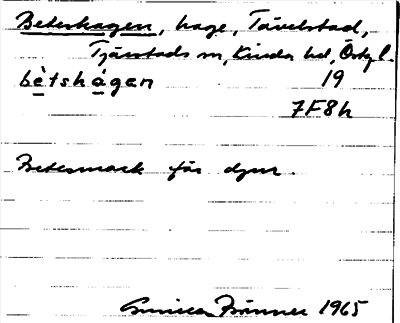 Beteshagen, hage, Tävelstad,
Tjärstads sn, Kinda hd, Östg l.
bètshàgan 19
7F8h
Betesmark för djur.
Gunica Brämner 1965